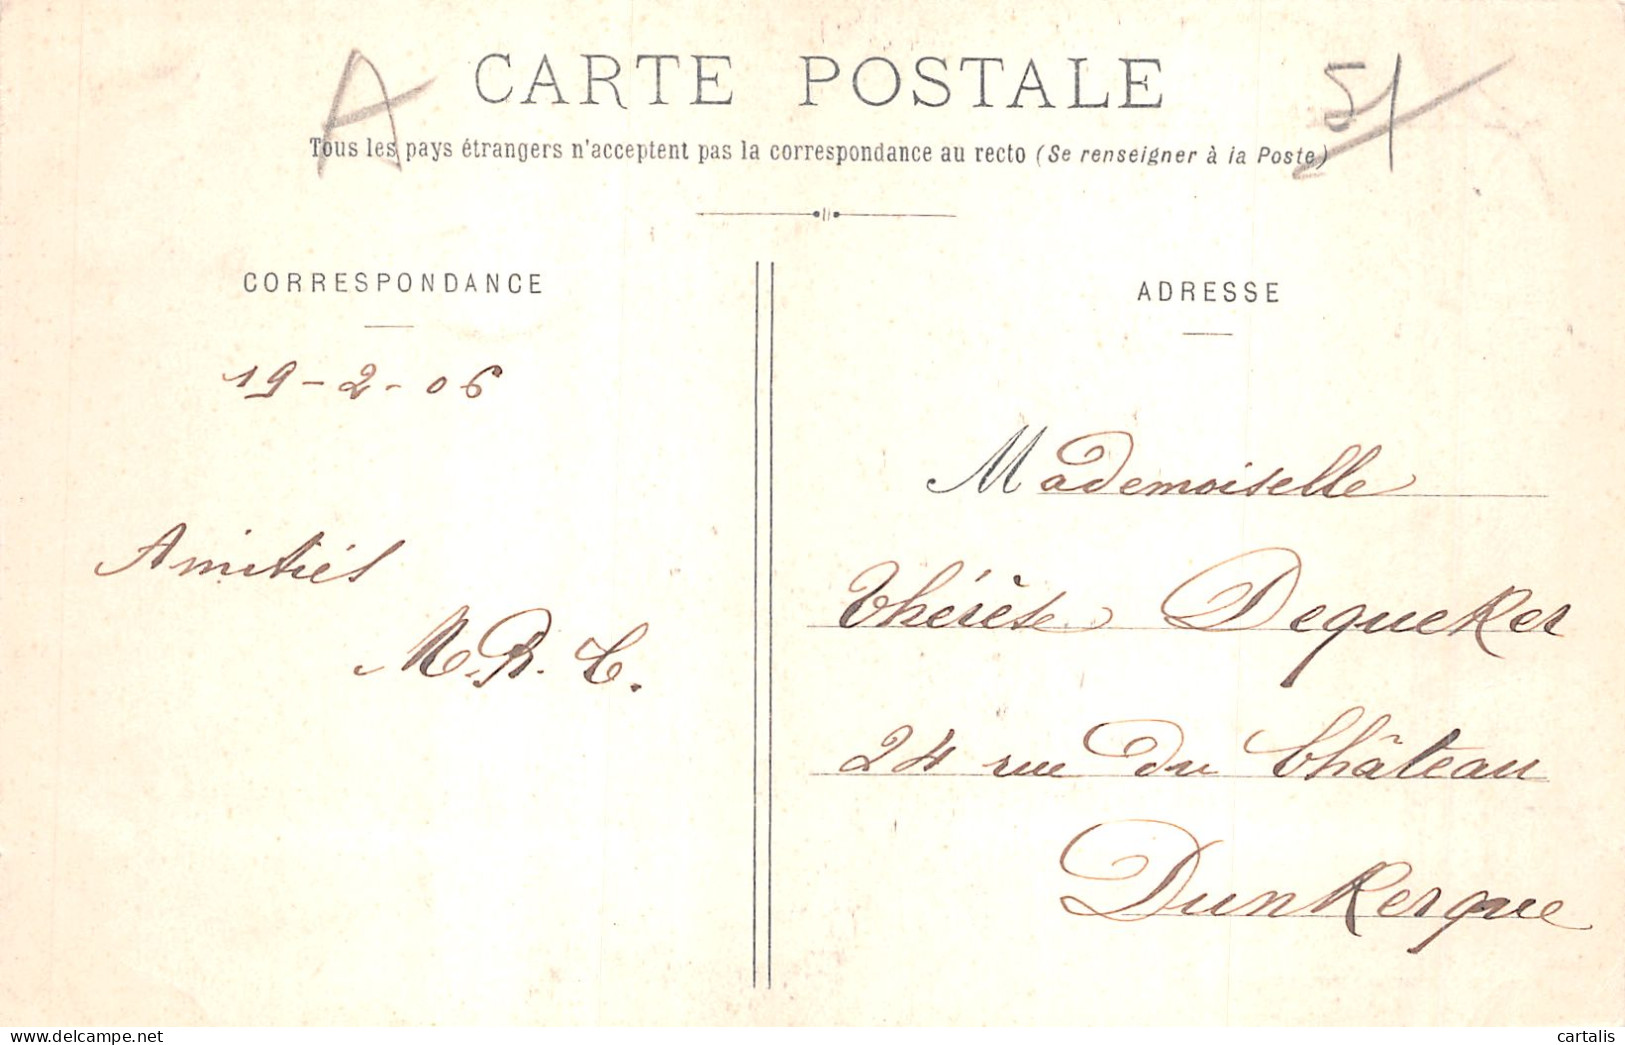 A
CARTE POSTALE
51
Tous les pays étrangers n'acceptent pas la correspondance au recto (Se renseigner à la Poste)
CORRESPONDANCE
19-2-06
Amitiés
M.R.C.
ADRESSE
Mademoiselle
Thérèse Dequeker
24 rue du Château
Dunkerque
cartalis